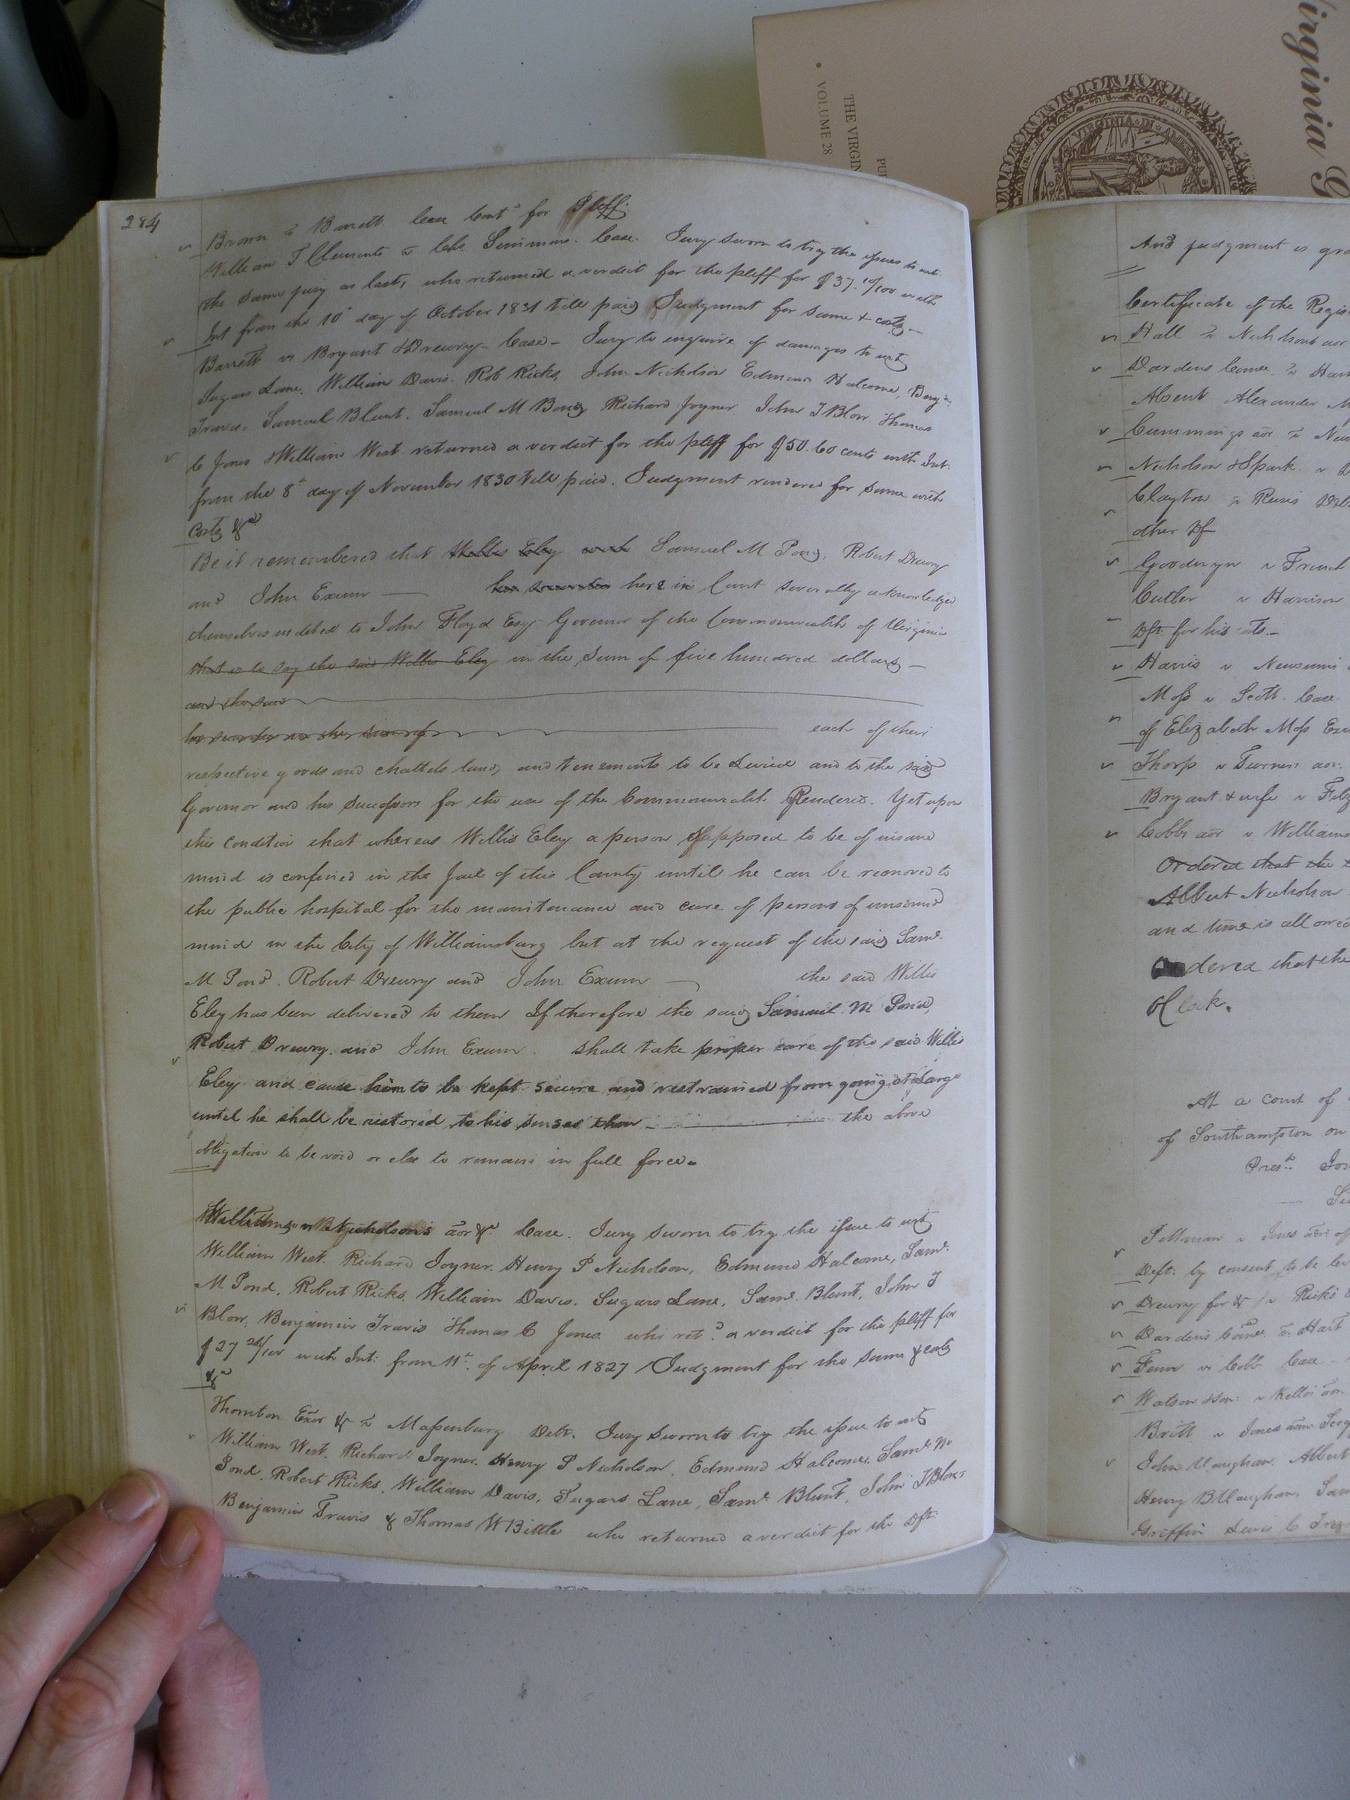 284
Brown v Barrett Case Cont.d for Pleff.
William T Clements v Ch.s Simmons. Case. Jury sworn to try the issues to wit
the same jury as last, who returned a verdict for the pleff for $37.10/100 with
Int from the 10 day of October 1831 till paid Judgment for same & costs
Barrett vs Bryant & Drewry Case Jury to enquire of damages to wit
Sugars Lane, William Davis. Rob Ricks, John Nicholson Edmund Halcome, Benj.n
Travis, Samuel Blunt. Samuel M Pond Richard Joyner John T Blow. Thomas
C Jones & William West. returned a verdict for the pleff for $50. 60 cents with Int.
from the 8th day of November 1830 till paid. Judgment rendered for same with
Costs &c
Be it remembered that Willis Eley Samuel M Pond, Robert Drewry
and John Exum here in Court severally acknowledged
themselves indebted to John Floyd Esq Governor of the Commonwealth of Virginia
that is to say the said Willis Eley in the sum of five hundred dollars
and the said
each of their
respective goods and chattels lands and tenements to be levied and to the said
Governor and his successors for the use of the Commonwealth Rendered. Yet upon
this condition that whereas Willis Eley a person supposed to be of insane
mind is confined in the Jail of this County until he can be removed to
the public hospital for the maintenance and care of persons of unsound
mind in the City of Williamsburg but at the request of the said Saml.
M Pond. Robert Drewry and John Exum the said Willis
Eley has been delivered to them If therefore the said Samuel M Pond,
Robert Drewry. and John Exum shall take proper care of the said Willis
Eley and cause him to be kept secure and restrained from going at large
until he shall be restored to his senses then the above
obligation to be void or else to remain in full force.
Williams v Nicholson's aor &c Case. Jury sworn to try the issue to wit
William West. Richard Joyner. Henry P Nicholson, Edmund Halcome, Saml.
M Pond, Robert Ricks, William Davis. Sugars Lane, Saml. Blunt, John T
Blow, Benjamin Travis Thomas C Jones who ret.d a verdict for the pleff for
$27 with Int: from 11th. of April 1827 Judgment for the same & costs
&c
Thornton Exor &c v Massenburg Debt. Jury sworn to try the issue to wit
William West. Richard Joyner. Henry P Nicholson. Edmund Halcome, Saml. M
Pond. Robert Ricks. William Davis, Sugars Lane, Saml. Blunt, John T Blow
Benjamin Travis & Thomas W Bittle who returned a verdict for the Dft
And judgment is gra
Certificate of the Regis
Hall v Nicholsons aor
Dardens v Har
Absent Alexander M
Cummings aor v New
Nicholson & Spark v
Clayton v
other Df
Goodwyn v French
Cutler v Harrison
Dft for his costs
Harris v Newsums
Moss v Scott Case
of Elizabeth Moss Exe
Thorp v Turner aor.
Bryant & wife v Fitz
Cobbs aor v Williams
Ordered that the
Albert Nicholson
and time is allowed
Ordered that the
oClock.
At a court of
of Southampton on
Pres.t
v Jones
Deft. by consent to be
Drewry for &c v Ricks
Dardens v Hart
Fenn v Cobb Case
Watson
Britt v Jones
John Vaughan. Albert
Henry B Vaughan, Sam
Griffin Lewis C
Virginia G
THE VIRGIN
VOLUME 28
PU
VIRGINIA